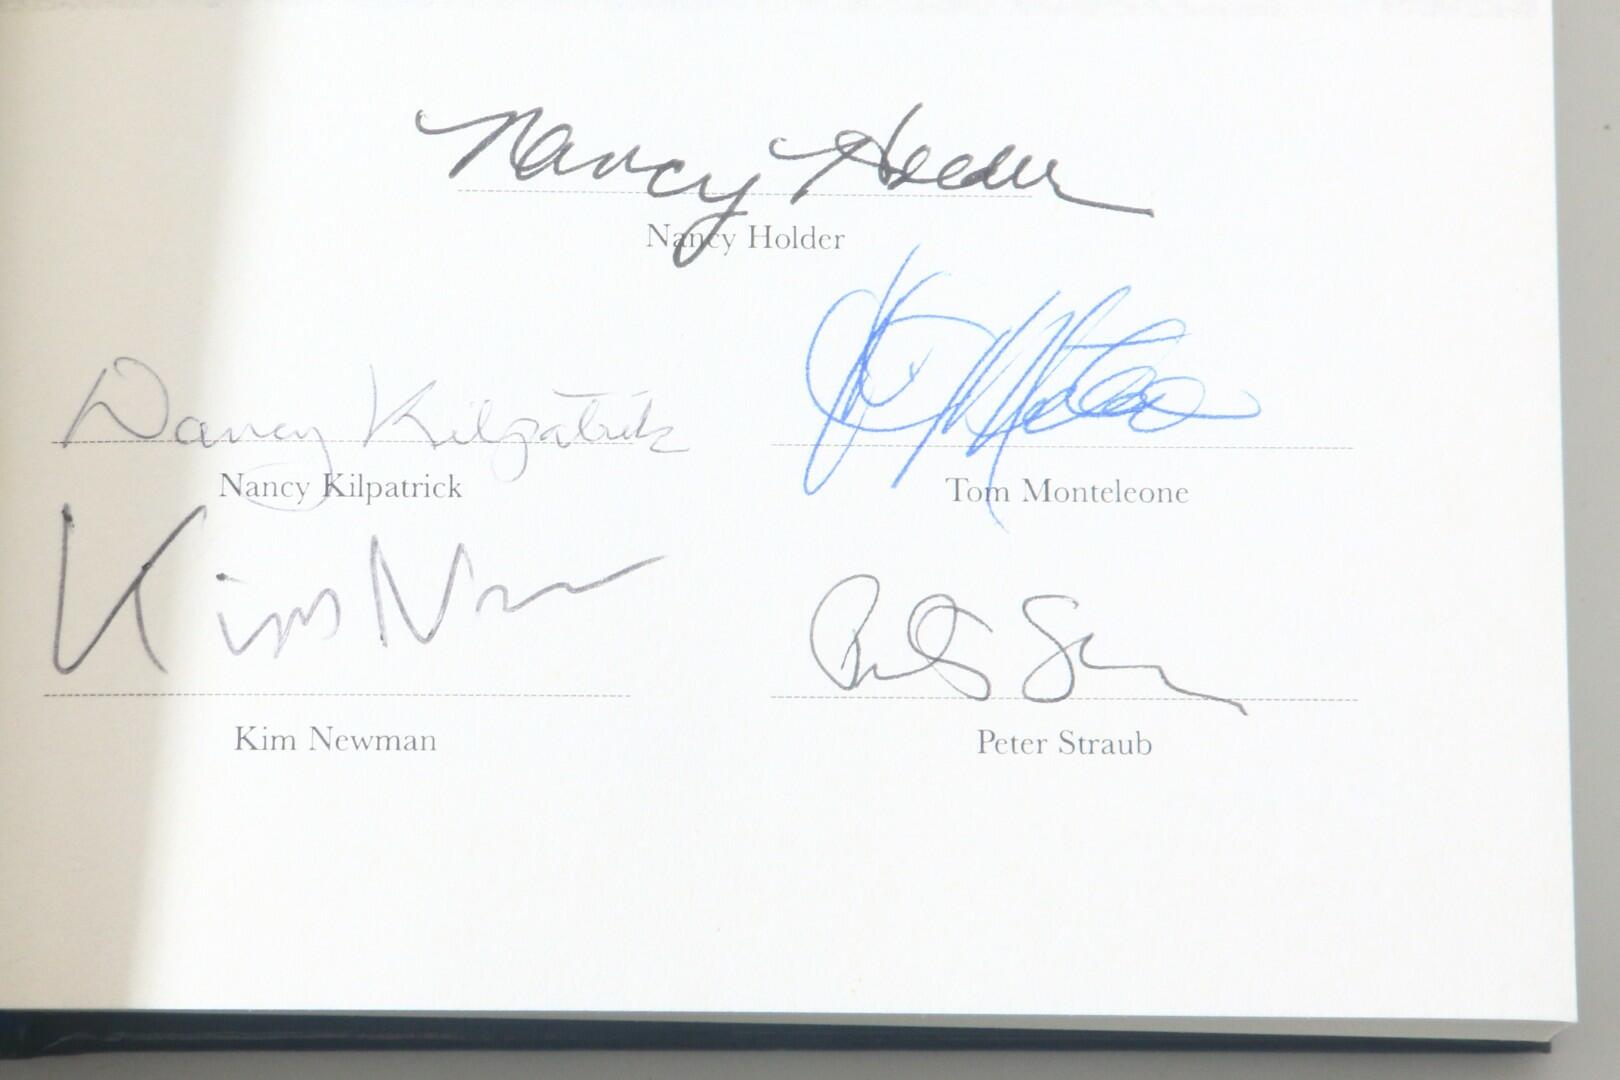 Nancy Holder
Nancy Holder
Nancy Kilpatrick
Nancy Kilpatrick
Tom Monteleone
Kim Newman
Kim Newman
Peter Straub
Peter Straub